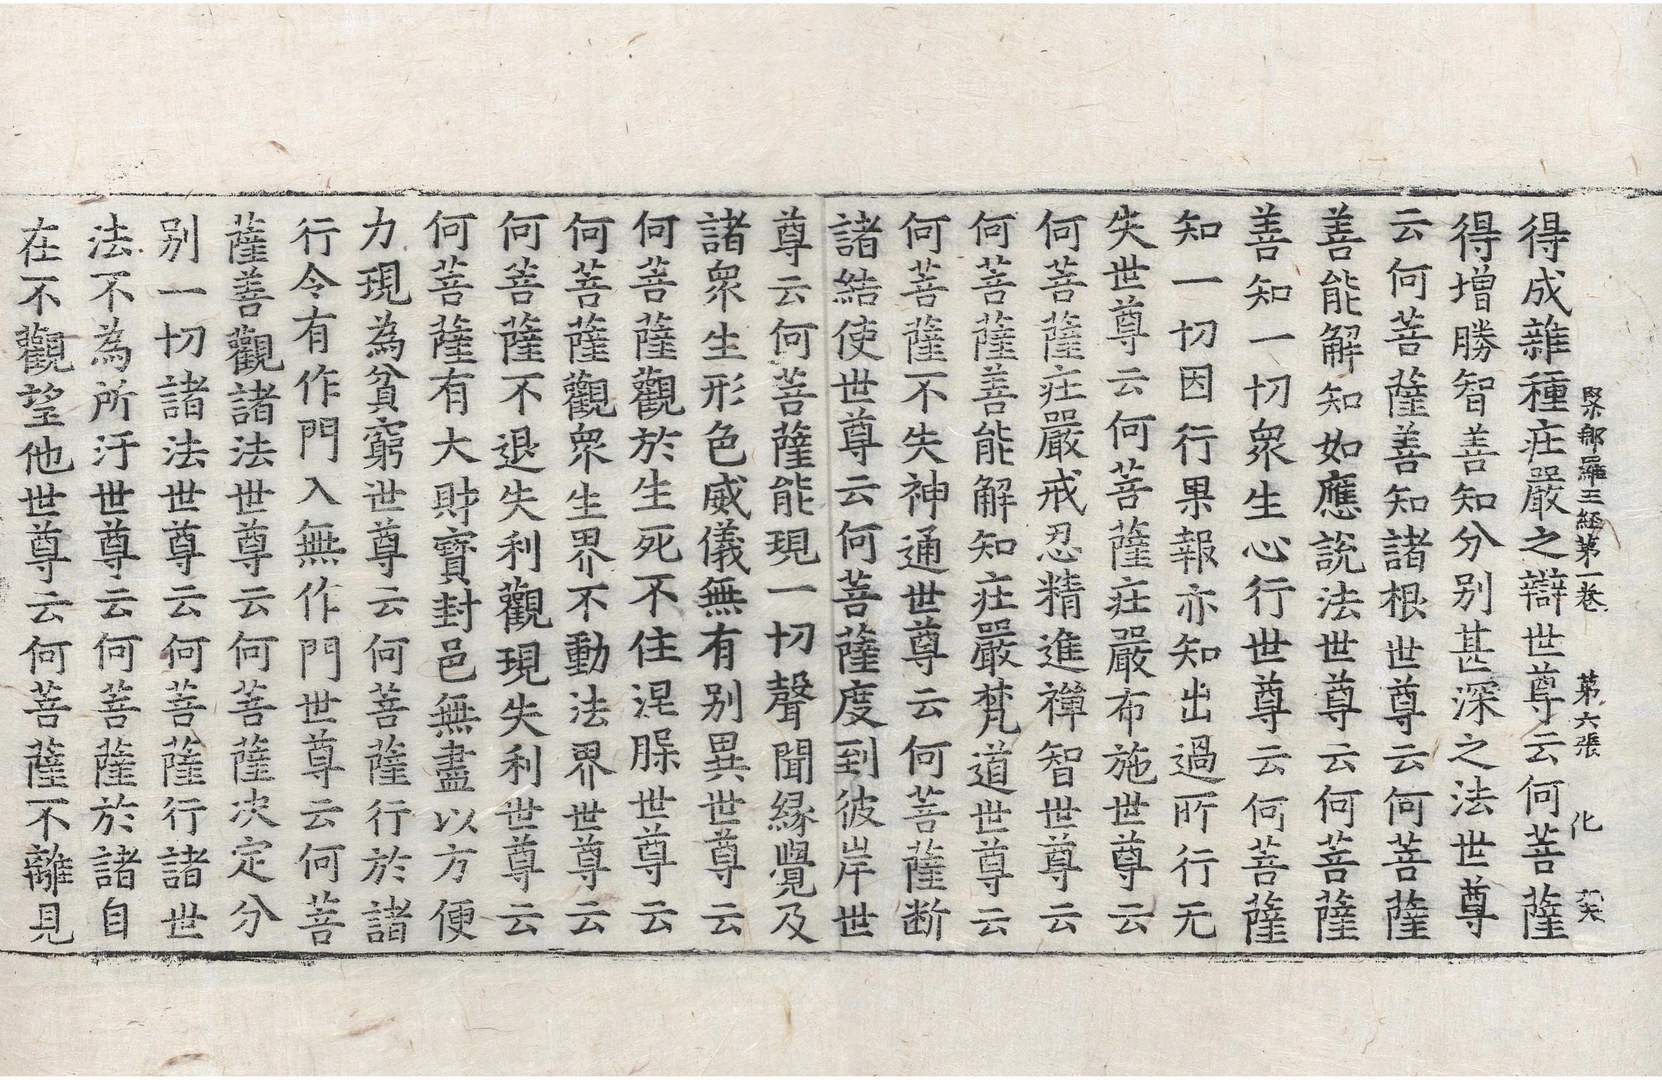 緊那羅王經第一卷 第六張 化
得成雜種庄嚴之辯世尊云何菩薩
得增勝智善知分别甚深之法世尊
云何菩薩善知諸根世尊云何菩薩
善能解知如應說法世尊云何菩薩
善知一切衆生心行世尊云何菩薩
知一切因行果報亦知出過所行无
失世尊云何菩薩庄嚴布施世尊云
何菩薩庄嚴戒忍精進禪智世尊云
何菩薩善能解知庄嚴梵道世尊云
何菩薩不失神通世尊云何菩薩断
諸結使世尊云何菩薩度到彼岸世
尊云何菩薩能現一切聲聞緣覺及
諸衆生形色威儀無有别異世尊云
何菩薩觀於生死不住涅𣵀世尊云
何菩薩觀衆生界不動法界世尊云
何菩薩不退失利觀現失利世尊云
何菩薩有大財寶封邑無盡以方便
力現為貧窮世尊云何菩薩行於諸
行令有作門入無作門世尊云何菩
薩善觀諸法世尊云何菩薩决定分
别一切諸法世尊云何菩薩行諸世
法不為所汙世尊云何菩薩於諸自
在不觀望他世尊云何菩薩不離見